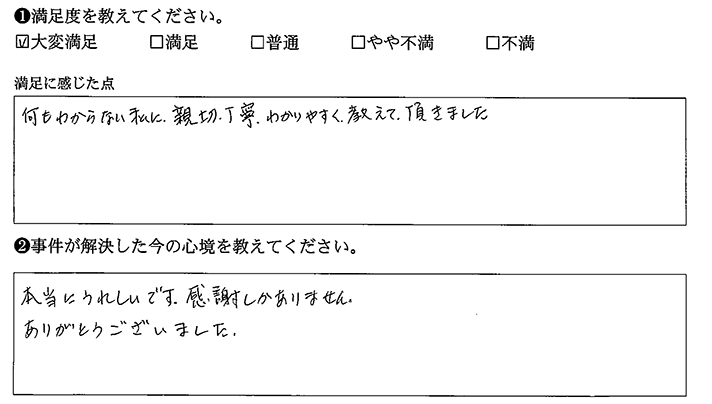 ❶満足度を教えてください。
☑大変満足 □満足 □普通 □やや不満 □不満
満足に感じた点
何もわからない私に、親切、丁寧、わかりやすく、教えて、頂きました
❷事件が解決した今の心境を教えてください。
本当にうれしいです。感謝しかありません。
ありがとうございました。